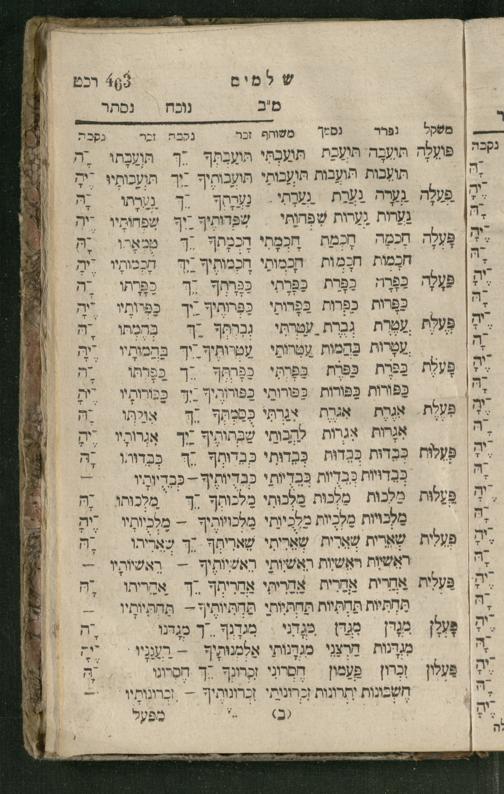 463 רכט שלמים
מ״ב נוכח נסתר
משקל נפרד נסמך משותף זכר נקבה זכר נקבה
פּוֹעֵלָה תּוֹעֵבָה תּוֹעֲבַת תּוֹעַבְתִּי תּוֹעַבְתְּךָ ־ֵךְ תּוֹעַבְתּוֹ ־ָהּ
תּוֹעֵבוֹת תּוֹעֲבוֹת תּוֹעֲבוֹתַי תּוֹעֲבוֹתֶיךָ ־ַיִךְ תּוֹעֲבוֹתָיו ־ֶיהָ
פַּעֲלָה נַעֲרָה נַעֲרַת נַעֲרָתִי נַעֲרָתְךָ ־ֵךְ נַעֲרָתוֹ ־ָהּ
נְעָרוֹת נַעֲרוֹת שִׁפְחוֹתַי שִׁפְחוֹתֶיךָ ־ַיִךְ שִׁפְחוֹתָיו ־ֶיהָ
פָּעְלָה חָכְמָה חָכְמַת חָכְמָתִי חָכְמָתְךָ ־ֵךְ טֻמְאָתוֹ ־ָהּ
חָכְמוֹת חָכְמוֹת חָכְמוֹתַי חָכְמוֹתֶיךָ ־ַיִךְ חָכְמוֹתָיו ־ֶיהָ
פַּעָּלָה כַּפָּרָה כַּפָּרַת כַּפָּרָתִי כַּפָּרָתְךָ ־ֵךְ כַּפָּרָתוֹ ־ָהּ
כַּפָּרוֹת כַּפָּרוֹת כַּפָּרוֹתַי כַּפָּרוֹתֶיךָ ־ַיִךְ כַּפָּרוֹתָיו ־ֶיהָ
פְּעֶלֶת עֲטֶרֶת גְּבֶרֶת עֲטַרְתִּי גְּבִרְתְּךָ ־ֵךְ בְּהֶמְתּוֹ ־ָהּ
עֲטָרוֹת בַּהֲמוֹת עַטְרוֹתַי עַטְרוֹתֶיךָ ־ַיִךְ בַּהֲמוֹתָיו ־ֶיהָ
פַּעֹלֶת כַּפֹּרֶת כַּפֹּרֶת כַּפָּרְתִּי כַּפָּרְתְּךָ ־ֵךְ כַּפָּרְתּוֹ ־ָהּ
כַּפּוֹרוֹת כַּפּוֹרוֹת כַּפּוֹרוֹתַי כַּפּוֹרוֹתֶיךָ ־ַיִךְ כַּפּוֹרוֹתָיו ־ֶיהָ
אִגֶּרֶת אִגֶּרֶת אִגַּרְתִּי כֻּסַּמְתְּךָ ־ֵךְ ־ָהּ
אִגְּרוֹת אִגְּרוֹת ־ַיִךְ אִגְּרוֹתָיו ־ֶיהָ
פְּעֵלוּת כְּבֵדוּת כְּבֵדוּת כְּבֵדוּתִי כְּבֵדוּתְךָ ־ֵךְ כְּבֵדוּתוֹ ־ָהּ
כְּבֵדִיּוֹת כְּבֵדִיּוֹת כְּבֵדִיּוֹתַי כְּבֵדִיּוֹתֶיךָ – כְּבֵדִיּוֹתָיו –
פַּעֲלוּת מַלְכוּת מַלְכוּת מַלְכוּתִי מַלְכוּתְךָ ־ֵךְ מַלְכוּתוֹ ־ָהּ
מַלְכוּיּוֹת מַלְכֻיּוֹת מַלְכֻיּוֹתַי מַלְכוּיּוֹתֶיךָ – מַלְכֻיּוֹתָיו ־ֶיהָ
פְּעֵלִית שְׁאֵרִית שְׁאֵרִית שְׁאֵרִיתִי שְׁאֵרִיתְךָ ־ֵךְ שְׁאֵרִיתוֹ ־ָהּ
רֵאשִׁיוֹת רֵאשִׁיוֹת רֵאשִׁיוֹתַי רֵאשִׁיוֹתֶיךָ – רֵאשִׁיוֹתָיו –
פַּעֲלִית אַחֲרִית אַחֲרִית אַחֲרִיתִי אַחֲרִיתְךָ ־ֵךְ אַחֲרִיתוֹ ־ָהּ
תַּחְתִּיּוֹת תַּחְתִּיּוֹת תַּחְתִּיּוֹתַי תַּחְתִּיּוֹתֶיךָ – תַּחְתִּיּוֹתָיו –
פַּעֲלָן מִגְדָּן מִגְדַּן מִגְדָּנִי מִגְדָּנְךָ ־ֵךְ מִגְדָּנוֹ ־ָהּ
מִגְדָּנוֹת מִגְדָּנוֹתַי ־ֶיהָ
פִּעֲלוֹן זִכָּרוֹן פַּעֲמוֹן חֶסְרוֹנִי זִכְרוֹנְךָ ־ֵךְ חֶסְרוֹנוֹ ־ָהּ
חֶשְׁבּוֹנוֹת יִתְרוֹנוֹת זִכְרוֹנוֹתַי זִכְרוֹנוֹתֶיךָ – זִכְרוֹנוֹתָיו –
(ב) מפעל